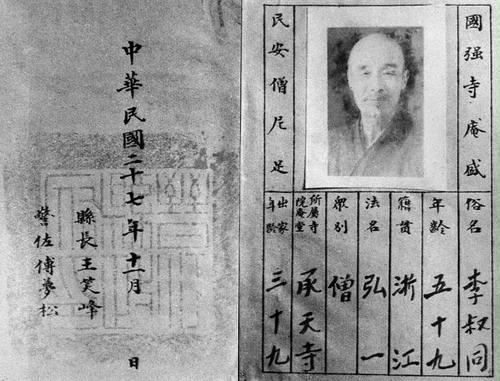 國强寺庵盛
民安僧尼足
俗名 李叔同
年齡 五十九
籍貫 浙江
法名 弘一
衆别 僧
所屬寺院庵堂 承天寺
出家年齡 三十九
中華民國二十七年十一月 日
縣長王笑峰
警佐傅夢松